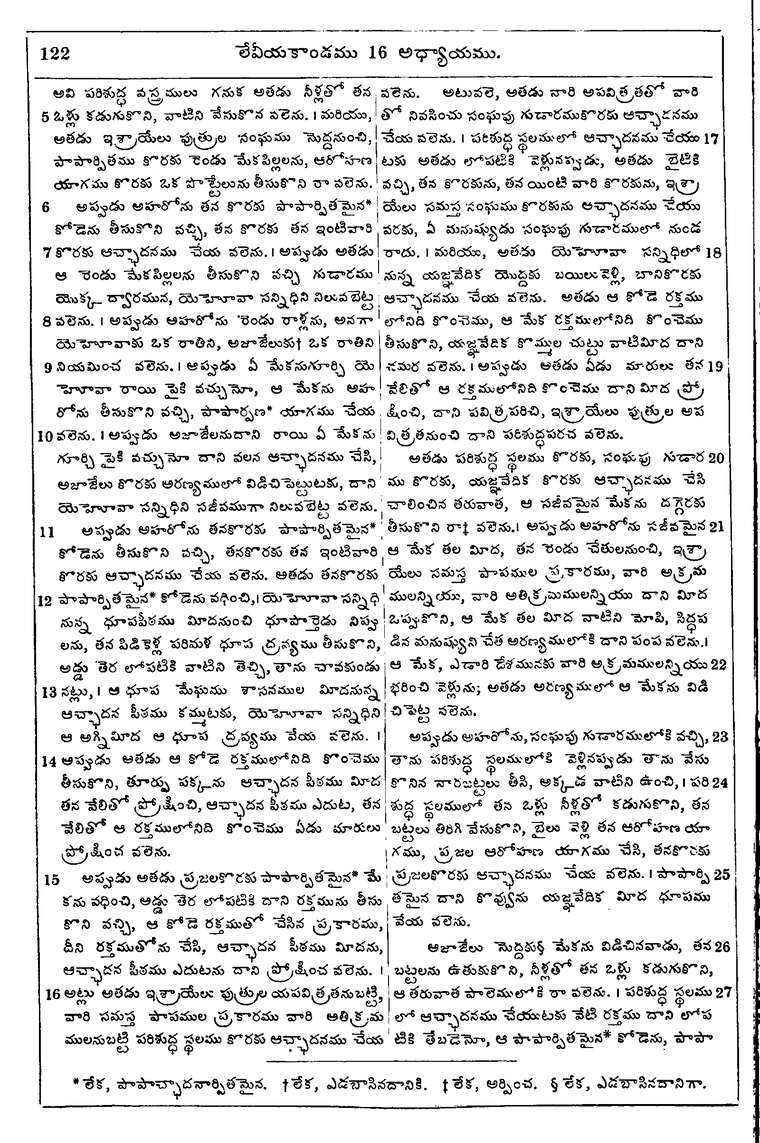 122
లేవీయకాండము 16 అధ్యాయము.
అవి పరిశుద్ధ వస్త్రములు గనుక అతడు నీళ్లతో తన
5 ఒళ్లు కడుగుకొని, వాటిని వేసుకొన వలెను. । మరియు,
అతడు ఇశ్రాయేలు పుత్రుల సంఘము నొద్దనుంచి,
పాపార్పితము కొరకు రెండు మేకపిల్లలను, ఆరోహణ
యాగము కొరకు ఒక పొట్టేలును తీసుకొని రా వలెను.
6 అప్పుడు అహరోను తన కొరకు పాపార్పితమైన*
కోడెను తీసుకొని వచ్చి, తన కొరకు తన ఇంటివారి
7 కొరకు ఆచ్ఛాదనము చేయ వలెను. । అప్పుడు అతడు
ఆ రెండు మేకపిల్లలను తీసుకొని వచ్చి గుడారము
యొక్క ద్వారమున, యెహోవా సన్నిధిని నిలువబెట్ట
8 వలెను. । అప్పుడు ఆహరోను రెండు రాళ్లను, అనగా
యెహోవాకు ఒక రాతిని, అజాజేలుకు† ఒక రాతిని
9 నియమించ వలెను. । అప్పుడు ఏ మేకనుగూర్చి యె
హోవా రాయి పైకి వచ్చునో, ఆ మేకను అహ
రోను తీసుకొని వచ్చి, పాపార్పణ* యాగము చేయ
10 వలెను. । అప్పుడు అజాజేలనుదాని రాయి ఏ మేకను
గూర్చి పైకి వచ్చునో దాని వలన ఆచ్ఛాదనము చేసి,
అజాజేలు కొరకు అరణ్యములో విడిచి పెట్టుటకు, దాని
యెహోవా సన్నిధిని సజీవముగా నిలువబెట్ట వలెను.
11 అప్పుడు అహరోను తనకొరకు పాపార్పితమైన*
కోడెను తీసుకొని వచ్చి, తనకొరకు తన ఇంటివారి
కొరకు ఆచ్ఛాదనము చేయ వలెను. అతడు తనకొరకు
12 పాపార్పితమైన* కోడెను వధించి, । యెహోవా సన్నిధి
నున్న ధూపపీఠము మీదనుంచి ధూపార్తెడు నిప్పు
లను, తన పిడికెళ్ల పరిమళ ధూప ద్రవ్యము తీసుకొని,
అడ్డు తెర లోపటికి వాటిని తెచ్చి, తాను చావకుండు
13 నట్లు, । ఆ ధూప మేఘము శాసనముల మీదనున్న
ఆచ్ఛాదన పీఠము కమ్ముటకు, యెహోవా సన్నిధిని
ఆ అగ్నిమీద ఆ ధూప ద్రవ్యము వేయ వలెను. ।
14 అప్పుడు అతడు ఆ కోడె రక్తములోనిది కొంచెము
తీసుకొని, తూర్పు పక్కను ఆచ్ఛాదన పీఠము మీద
తన వేలితో ప్రోక్షించి, ఆచ్ఛాదన పీఠము ఎదుట, తన
వేలితో ఆ రక్తములోనిది కొంచెము ఏడు మారులు
ప్రోక్షించ వలెను.
15 అప్పుడు అతడు ప్రజలకొరకు పాపార్పితమైన* మే
కను వధించి, అడ్డు తెర లోపటికి దాని రక్తమును తీసు
కొని వచ్చి, ఆ కోడె రక్తముతో చేసిన ప్రకారము,
దీని రక్తముతోను చేసి, ఆచ్ఛాదన పీఠము మీదను,
ఆచ్ఛాదన పీఠము ఎదుటను దాని ప్రోక్షించ వలెను. ।
16 అట్లు అతడు ఇశ్రాయేలు పుత్రుల యపవిత్రతనుబట్టి,
వారి సమస్త పాపముల ప్రకారము వారి అతిక్రమ
ములనుబట్టి పరిశుద్ధ స్థలము కొరకు ఆచ్ఛాదనము చేయ
వలెను. అటువలె, అతడు వారి అపవిత్రతతో వారి
తో నివసించు సంఘపు గుడారముకొరకు ఆచ్ఛాదనము
చేయ వలెను. । పరిశుద్ధ స్థలములో ఆచ్ఛాదనము చేయు 17
టకు అతడు లోపటికి వెళ్లునప్పుడు, అతడు బైటికి
వచ్చి, తన కొరకును, తన యింటి వారి కొరకును, ఇశ్రా
యేలు సమస్త సంఘము కొరకును ఆచ్ఛాదనము చేయు
వరకు, ఏ మనుష్యుడు సంఘపు గుడారములో నుండ
రాదు. । మరియు, అతడు యెహోవా సన్నిధిలో 18
నున్న యజ్ఞవేదిక యొద్దకు బయలువెళ్లి, దానికొరకు
ఆచ్ఛాదనము చేయ వలెను. అతడు ఆ కోడె రక్తము
లోనిది కొంచెము, ఆ మేక రక్తములోనిది కొంచెము
తీసుకొని, యజ్ఞవేదిక కొమ్ముల చుట్టు వాటిమీద దాని
చమర వలెను. । అప్పుడు అతడు ఏడు మారులు తన 19
వేలితో ఆ రక్తములోనిది కొంచెము దానిమీద ప్రో
క్షించి, దాని పవిత్రపరిచి, ఇశ్రాయేలు పుత్రుల అప
విత్రతనుంచి దాని పరిశుద్ధపరచ వలెను.
అతడు పరిశుద్ధ స్థలము కొరకు, సంఘపు గుడార 20
ము కొరకు, యజ్ఞవేదిక కొరకు ఆచ్ఛాదనము చేసి
చాలించిన తరువాత, ఆ సజీవమైన మేకను దగ్గెరకు
తీసుకొని రా‡ వలెను. । అప్పుడు అహరోను సజీవమైన 21
ఆ మేక తల మీద, తన రెండు చేతులనుంచి, ఇశ్రా
యేలు సమస్త పాపముల ప్రకారము, వారి అక్రమ
ములన్నియు, వారి అతిక్రమములన్నియు దాని మీద
ఒప్పుకొని, ఆ మేక తల మీద వాటిని మోపి, సిద్ధప
డిన మనుష్యుని చేత అరణ్యములోకి దాని పంప వలెను. ।
ఆ మేక, ఎడారి దేశమునకు వారి అక్రమములన్నియు 22
భరించి వెళ్లును; అతడు అరణ్యములో ఆ మేకను విడి
చిపెట్ట వలెను.
అప్పుడు అహరోను, సంఘపు గుడారములోకి వచ్చి, 23
తాను పరిశుద్ధ స్థలములోకి వెళ్లినప్పుడు తాను వేసు
కొనిన నారబట్టలు తీసి, అక్కడ వాటిని ఉంచి, । పరి 24
శుద్ధ స్థలములో తన ఒళ్లు నీళ్లతో కడుగుకొని, తన
బట్టలు తిరిగి వేసుకొని, బైలు వెళ్లి తన ఆరోహణ యా
గము, ప్రజల ఆరోహణ యాగము చేసి, తనకొరకు
ప్రజలకొరకు ఆచ్ఛాదనము చేయ వలెను. । పాపార్పి 25
తమైన దాని కొవ్వును యజ్ఞవేదిక మీద ధూపము
వేయ వలెను.
అజాజేలు నొద్దకు§ మేకను విడిచినవాడు, తన 26
బట్టలను ఉతుకుకొని, నీళ్లతో తన ఒళ్లు కడుగుకొని,
ఆ తరువాత పాలెములోకి రా వలెను. । పరిశుద్ధ స్థలము 27
లో ఆచ్ఛాదనము చేయుటకు వేటి రక్తము దాని లోప
టికి తేబడెనో, ఆ పాపార్పితమైన* కోడెను, పాపా
* లేక, పాపాచ్ఛాదనార్పితమైన. † లేక, ఎడబాసినదానికి. ‡ లేక, అర్పించ. § లేక, ఎడబాసినదానిగా.